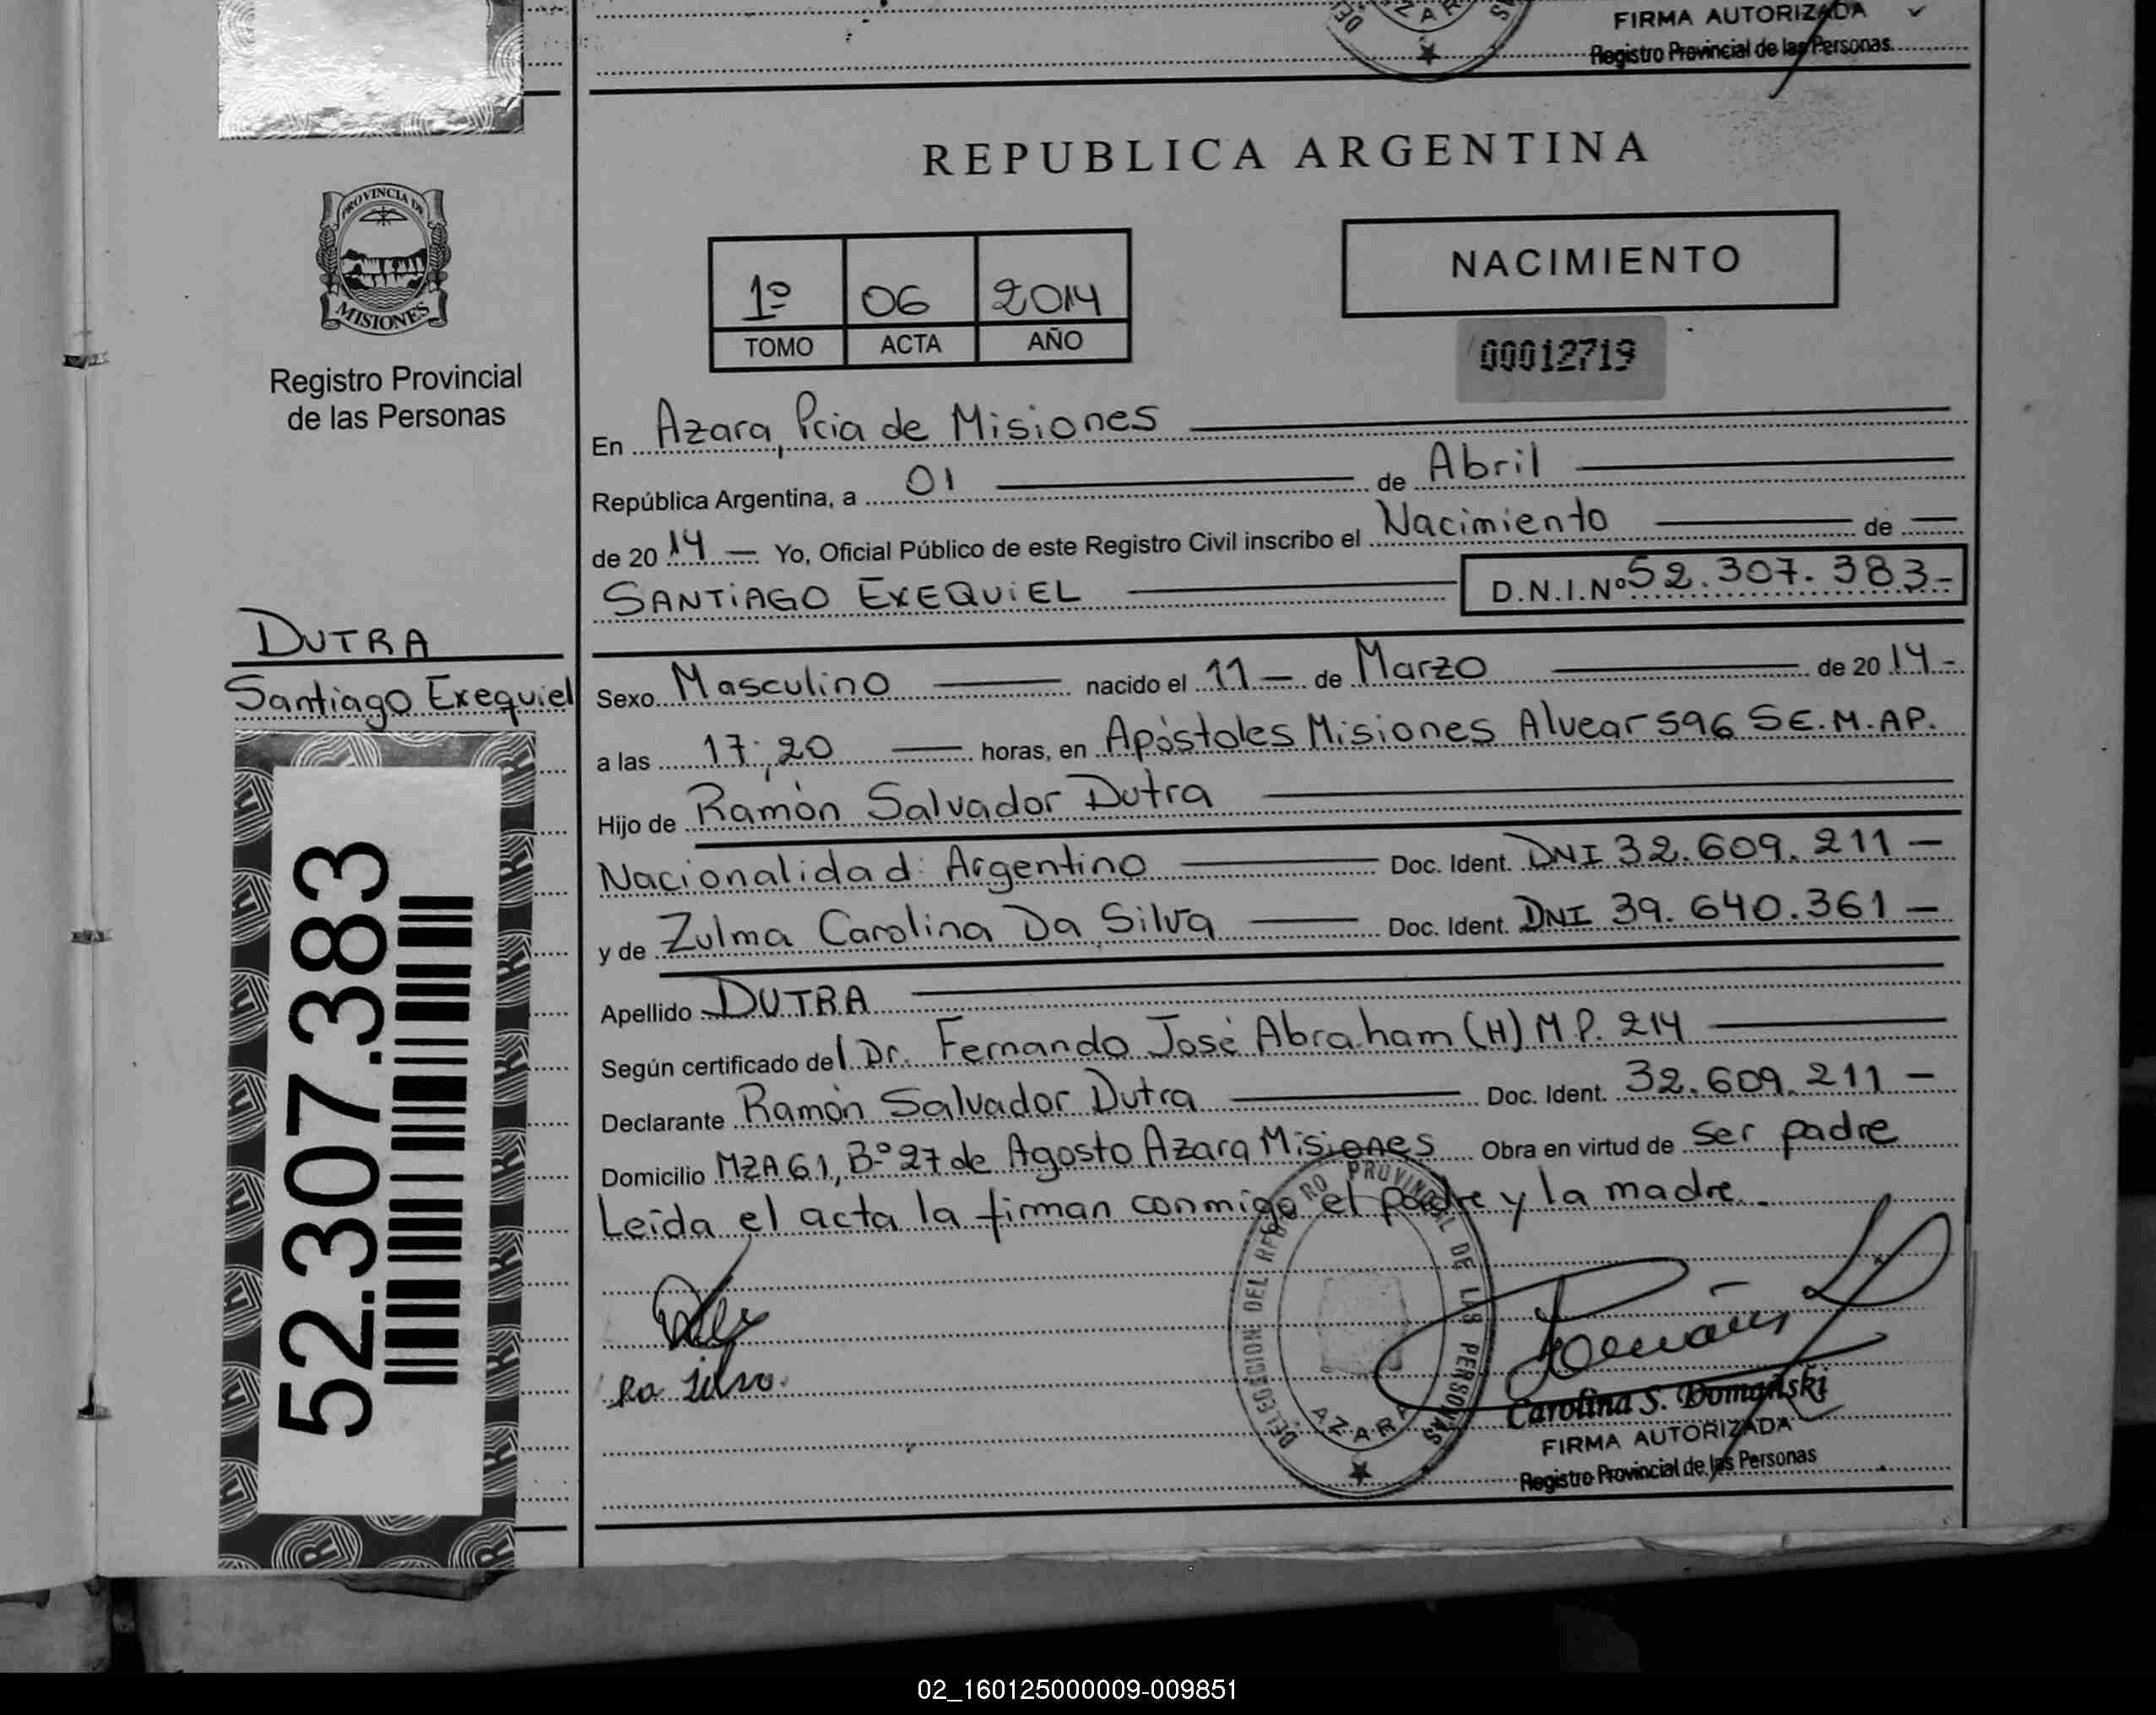 FIRMA AUTORIZADA
Registro Provincial de las Personas
REPUBLICA ARGENTINA
PROVINCIA DE
MISIONES
Registro Provincial
de las Personas
1º 06 2014
TOMO ACTA AÑO
NACIMIENTO
00012719
En Azara, Pcia de Misiones
República Argentina, a 01 de Abril
de 20 14 Yo, Oficial Público de este Registro Civil inscribo el Nacimiento de
SANTIAGO EXEQUIEL D.N.I.Nº 52.307.383-
DUTRA
Santiago Exequiel
52.307.383
Sexo Masculino nacido el 11 de Marzo de 20 14-
a las 17:20 horas, en Apóstoles Misiones Alvear 596 SE.M.AP.
Hijo de Ramón Salvador Dutra
Nacionalidad: Argentino Doc. Ident. DNI 32.609.211 -
y de Zulma Carolina Da Silva Doc. Ident. DNI 39.640.361 -
Apellido DUTRA
Según certificado del Dr. Fernando José Abraham (H) M.P. 214
Declarante Ramón Salvador Dutra Doc. Ident. 32.609.211 -
Domicilio MZA 61, Bº 27 de Agosto Azara Misiones Obra en virtud de ser padre
Leída el acta la firman conmigo el padre y la madre.
DELEGACION DEL REGISTRO PROVINCIAL DE LAS PERSONAS
AZARA
Carolina S. Domański
FIRMA AUTORIZADA
Registro Provincial de las Personas
02_160125000009-009851